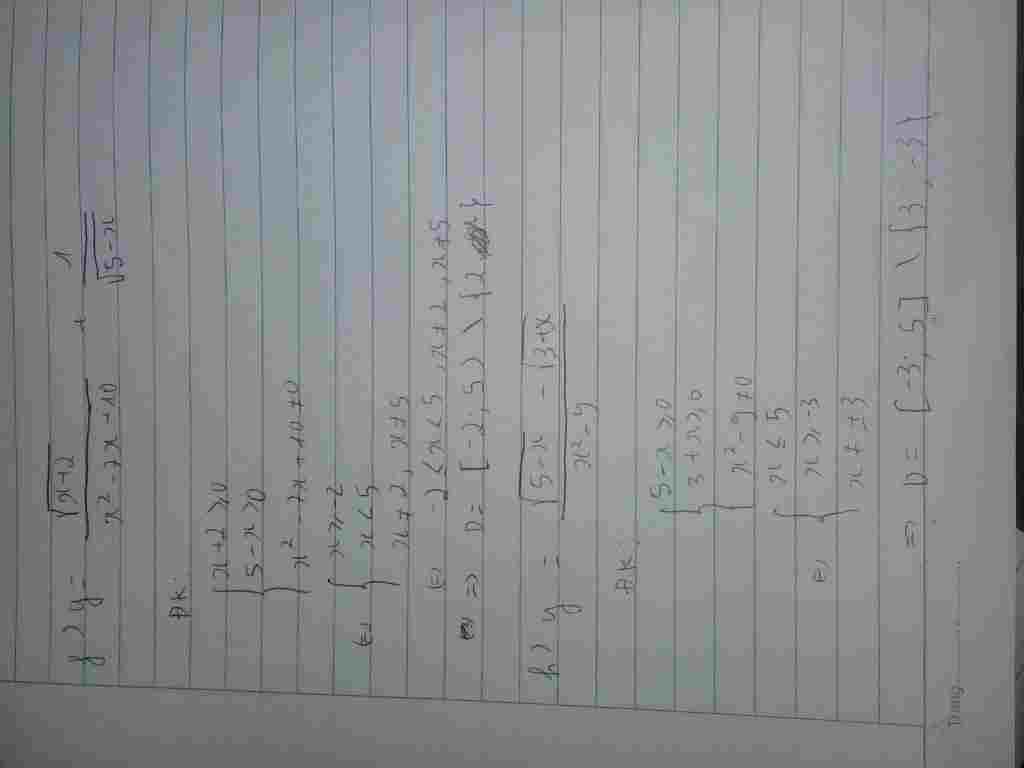 f) y = √(x+2) / (x² - 7x + 10) + 1 / √(5-x)
ĐK:
{ x+2 ≥ 0
5-x > 0
x² - 7x + 10 ≠ 0
(=) { x ≥ -2
x < 5
x ≠ 2, x ≠ 5
(=) -2 ≤ x < 5, x ≠ 2, x ≠ 5
=> D = [-2; 5) \ {2}
h) y = (√(5-x) - √(3+x)) / (x² - 9)
ĐK:
{ 5-x ≥ 0
3+x ≥ 0
x² - 9 ≠ 0
(=) { x ≤ 5
x ≥ -3
x ≠ ±3
=> D = [-3; 5] \ {3, -3}
Trang